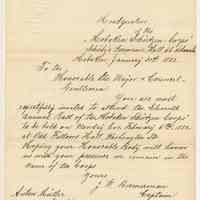 Headquarters
of the
Hoboken Schützen Corps
Hoboken, January 30th, 1882.
To the
Honorable the Mayor & Council
Gentlemen
You are most
respectfully invited to attend the
Annual Ball of the Hoboken Schützen Corps
to be held on Monday Eve. February 6th 1882.
at Odd Fellows Hall, Washington St.
Hoping your Honorable Body will honor
us with your presence we remain in the
name of the Corps
Yours
Captain